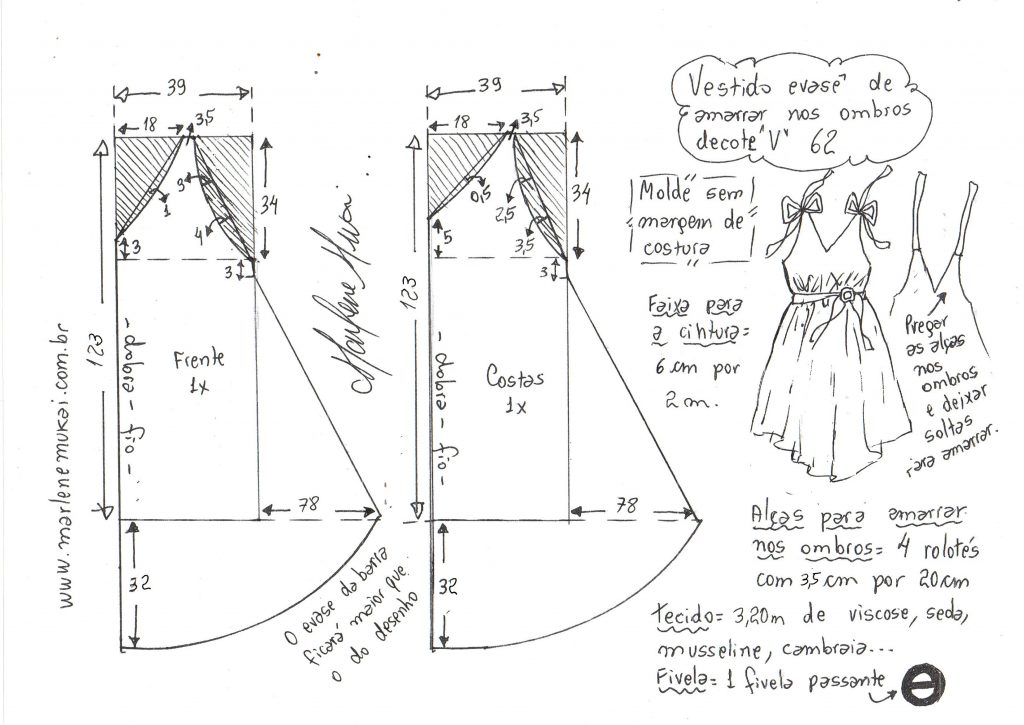 39
18
3,5
9
1
4
34
3
3
123
www.marlenemukai.com.br
- dobra - fio -
Frente
1x
78
32
O evase da barra
ficará maior que
o do desenho
Marlene Mukai
39
18
3,5
0,5
2,5
3,5
34
5
3
123
- dobra - fio -
Costas
1x
78
32
Vestido evasê de
amarrar nos ombros
decote "V" 62
Molde sem
margem de
costura
Faixa para
a cintura=
6 cm por
2 m.
Pregar
as alças
nos
ombros
e deixar
soltas
para amarrar.
Alças para amarrar
nos ombros= 4 rolotés
com 3,5 cm por 20 cm
Tecido= 3,20m de viscose, seda,
musseline, cambraia...
Fivela= 1 fivela passante